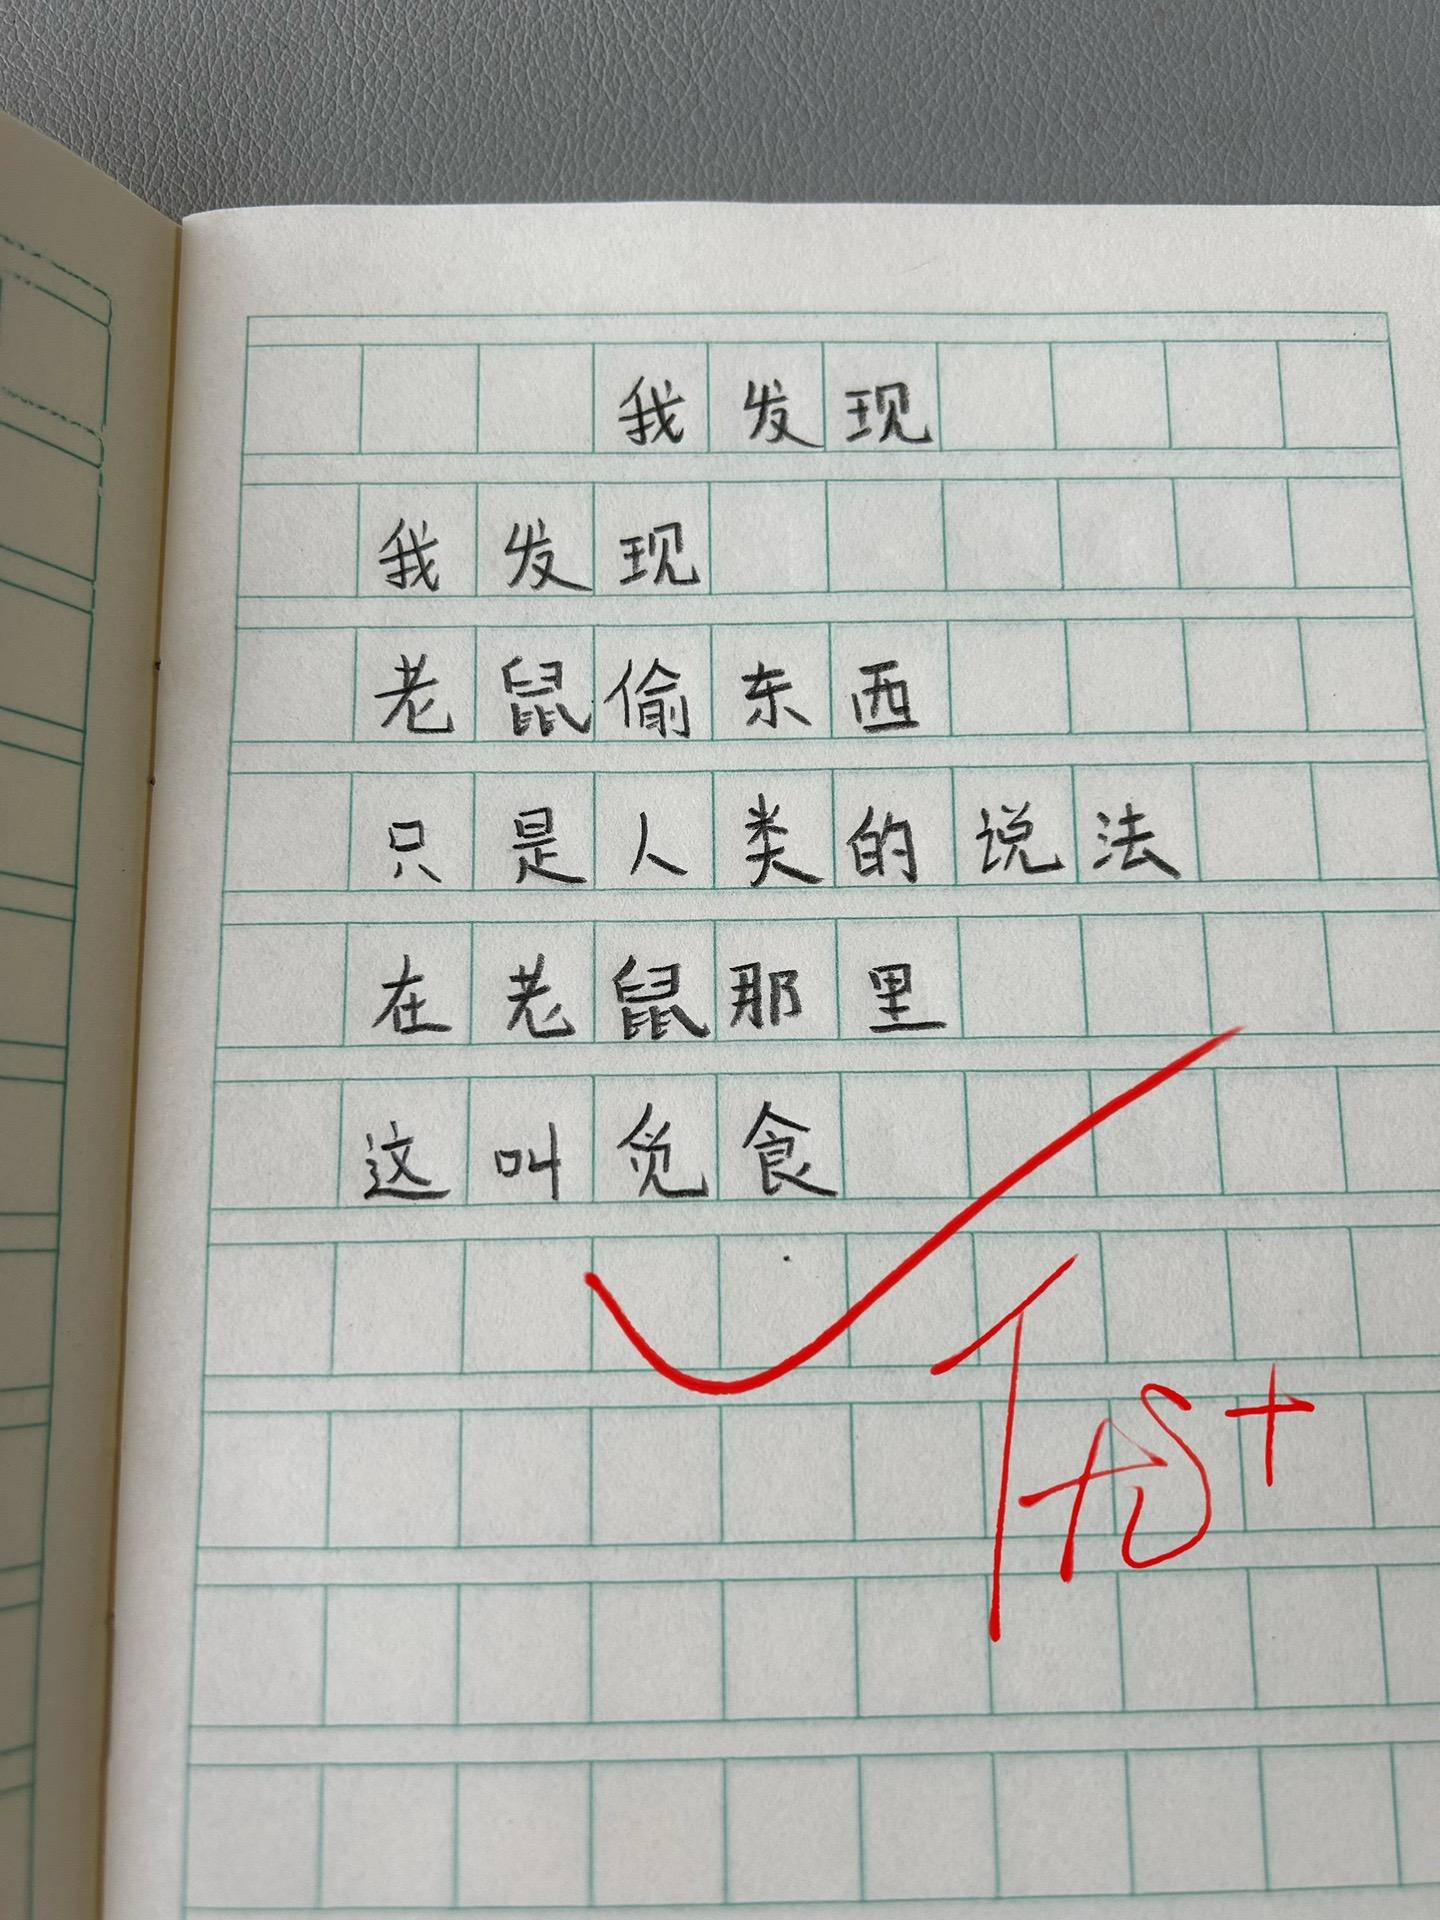 我发现
我发现
老鼠偷东西
只是人类的说法
在老鼠那里
这叫觅食